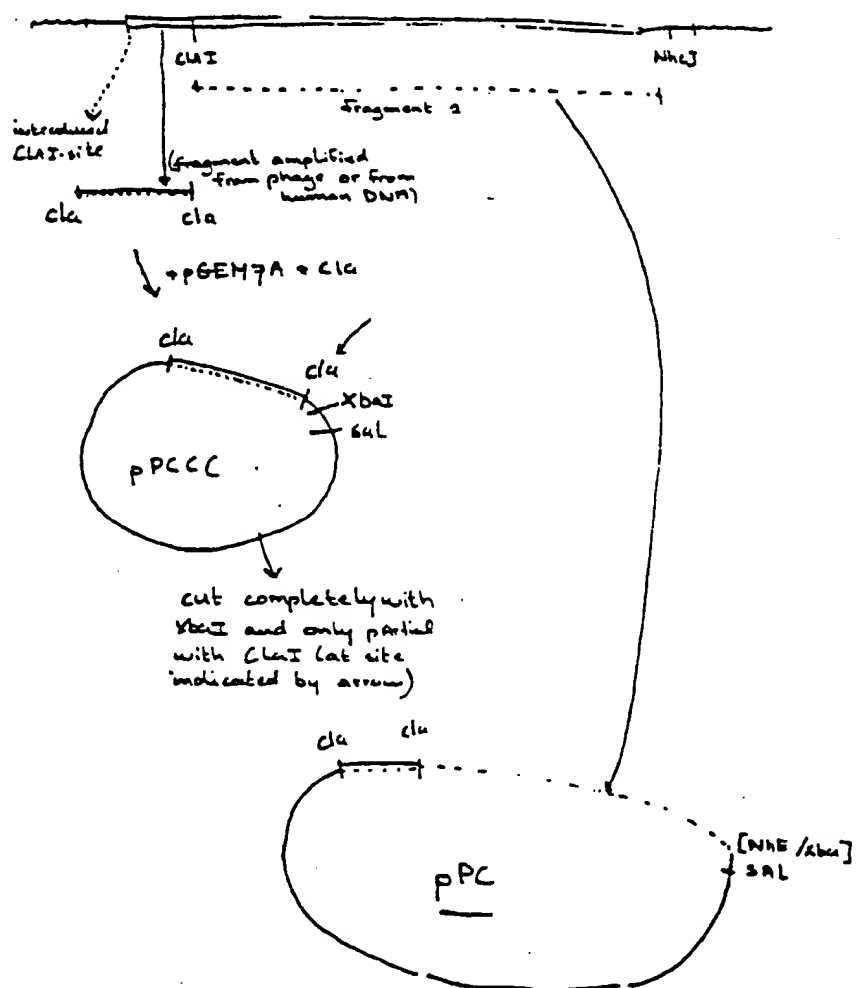 ClAI
NheI
fragment 2
introduced
ClAI-site
(fragment amplified
from phage or from
human DNA)
Cla
cla
+pGEM7A + Cla
cla
cla
XbaI
sal
pPCCC
cut completely with
XbaI and only pArtial
with ClaI (at site
indicated by arrow)
cla
cla
[NhE/xba]
SAL
pPC